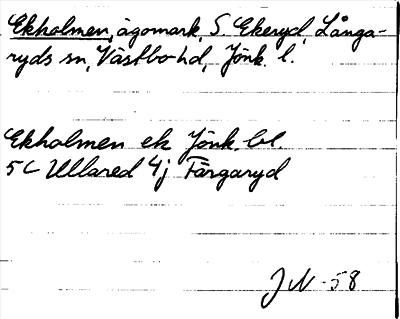 Ekholmen, ägomark, S. Ekeryd, Långa-
ryds sn, Västbo hd, Jönk. l.
Ekholmen ek Jönk. bl.
5c Ullared 4j Färgaryd
JN-58